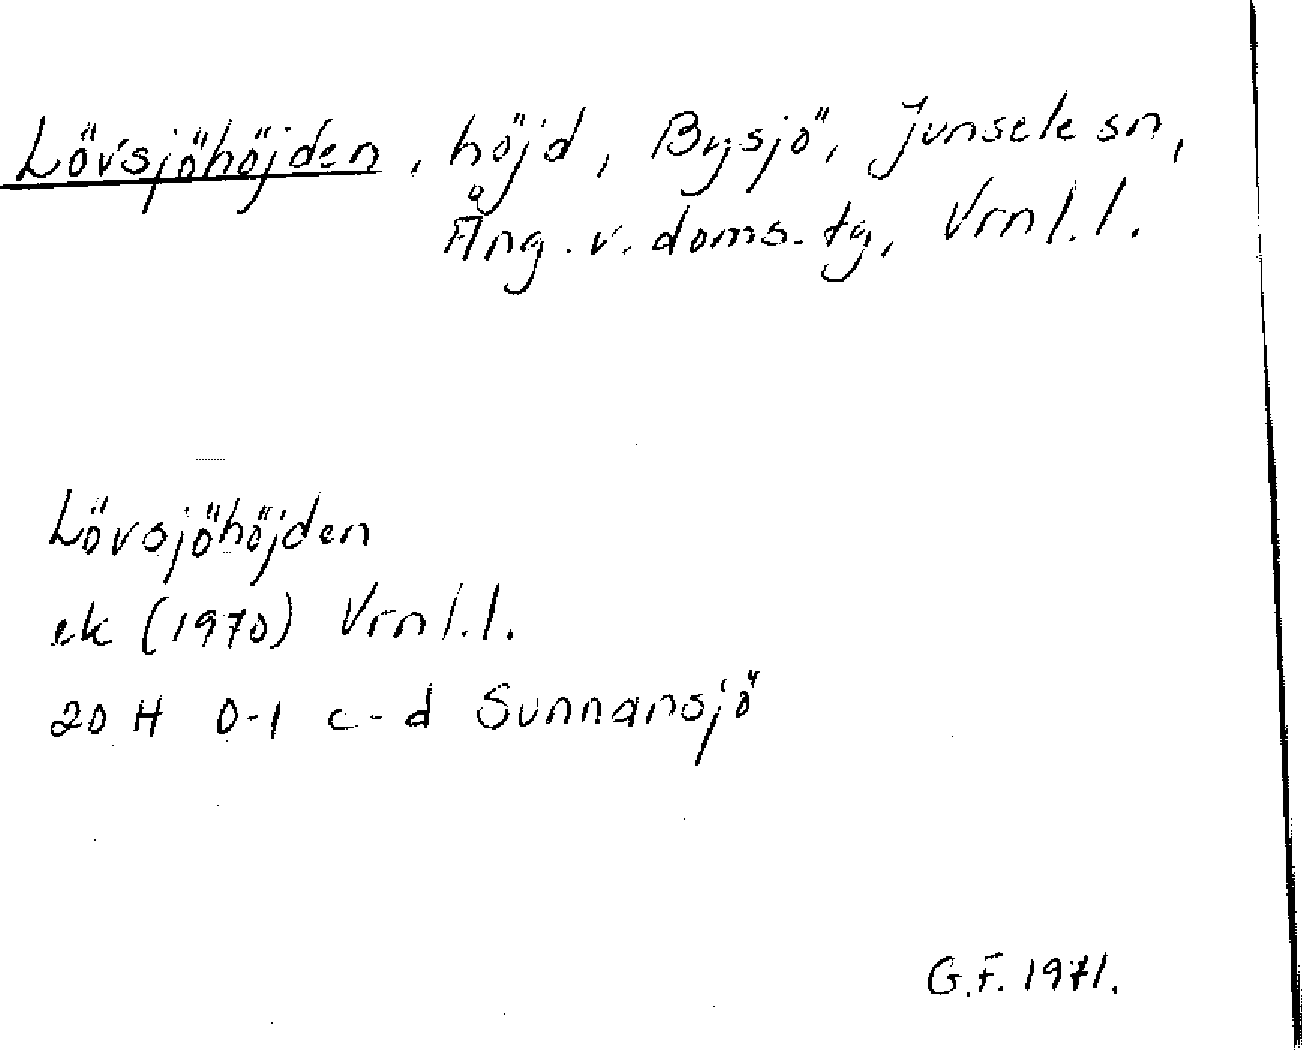 Lövsjöhöjden, höjd, Bysjö, Junsele sn,
Ång. v. doms. tg, Vrnl.l.
Lövsjöhöjden
ek (1970) Vrnl.l.
20 H 0-1 c-d Sunnansjö
G.F. 1971.